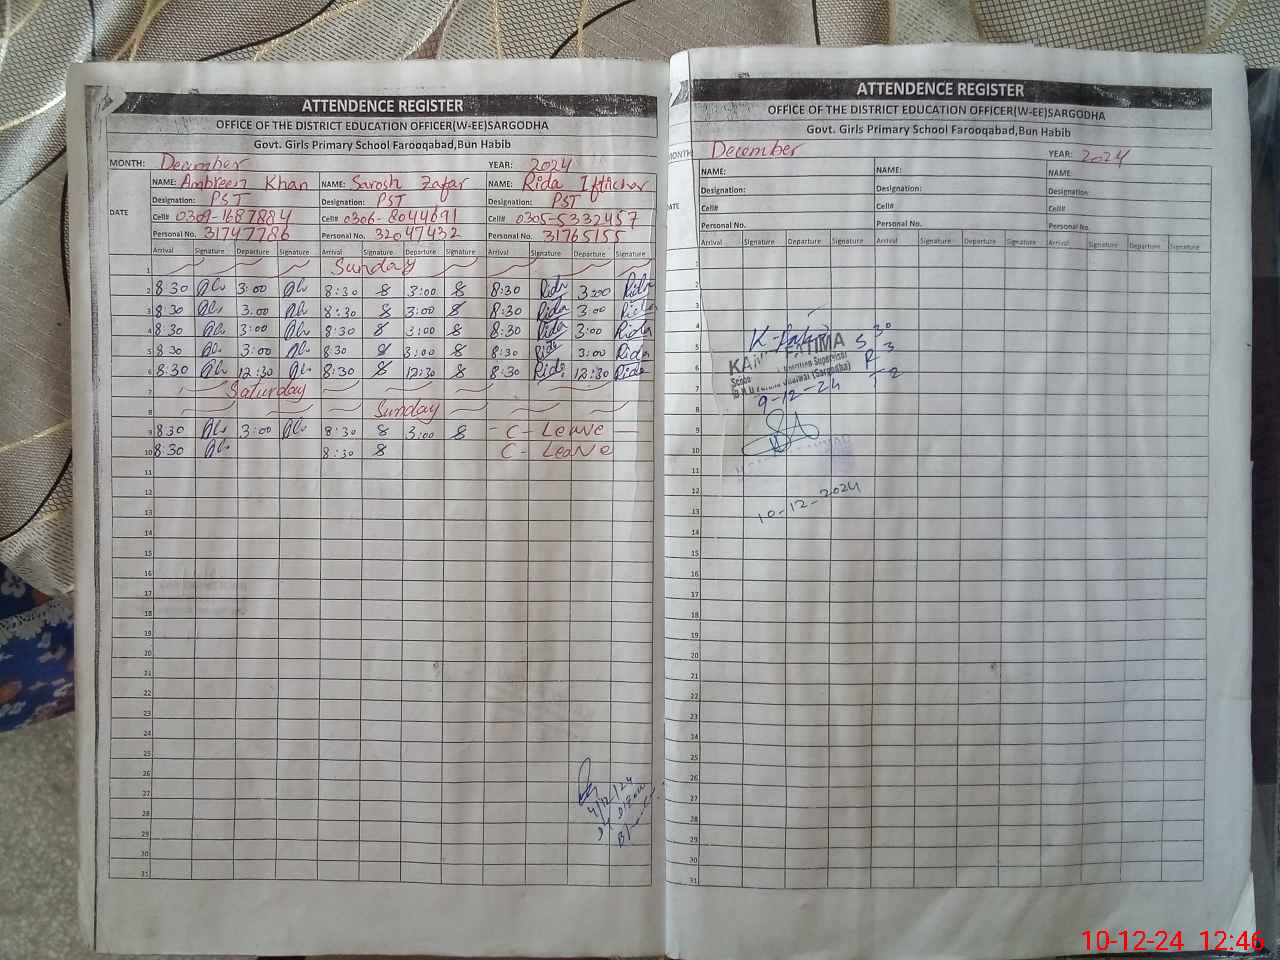 ATTENDENCE REGISTER
OFFICE OF THE DISTRICT EDUCATION OFFICER(W-EE)SARGODHA
Govt. Girls Primary School Farooqabad,Bun Habib
MONTH: December YEAR: 2024
NAME: Ambreen Khan NAME: Sarosh Zafar NAME: Rida Iftichar
DATE Designation: PST Designation: PST Designation: PST
Cell# 0309-1687884 Cell# 0306-8044691 Cell# 0305-5332457
Personal No. 31747786 Personal No. 32047432 Personal No. 31765155
Arrival Signature Departure Signature Arrival Signature Departure Signature Arrival Signature Departure Signature
1 Sunday
2 8:30 3:00 8:30 8 3:00 8 8:30 Rida 3:00 Rida
3 8:30 3:00 8:30 8 3:00 8 8:30 Rida 3:00 Rida
4 8:30 3:00 8:30 8 3:00 8 8:30 Rida 3:00 Rida
5 8:30 3:00 8:30 8 3:00 8 8:30 Rida 3:00 Rida
6 8:30 12:30 8:30 8 12:30 8 8:30 Rida 12:30 Rida
7 Saturday
8 Sunday
9 8:30 3:00 8:30 8 3:00 8 - C - Leave
10 8:30 8:30 8 C - Leave
11
12
13
14
15
16
17
18
19
20
21
22
23
24
25
26
27
28
29
30
31
4/12/24
ATTENDENCE REGISTER
OFFICE OF THE DISTRICT EDUCATION OFFICER(W-EE)SARGODHA
Govt. Girls Primary School Farooqabad,Bun Habib
MONTH: December YEAR: 2024
NAME: NAME: NAME:
Designation: Designation: Designation:
DATE Cell# Cell# Cell#
Personal No. Personal No. Personal No.
Arrival Signature Departure Signature Arrival Signature Departure Signature Arrival Signature Departure Signature
1
2
3
4
5
6
7
8
9
10
11
12
13
14
15
16
17
18
19
20
21
22
23
24
25
26
27
28
29
30
31
FATIMA
Supervisor
(Sargodha)
9-12-24
10-12-2024
10-12-24 12:46